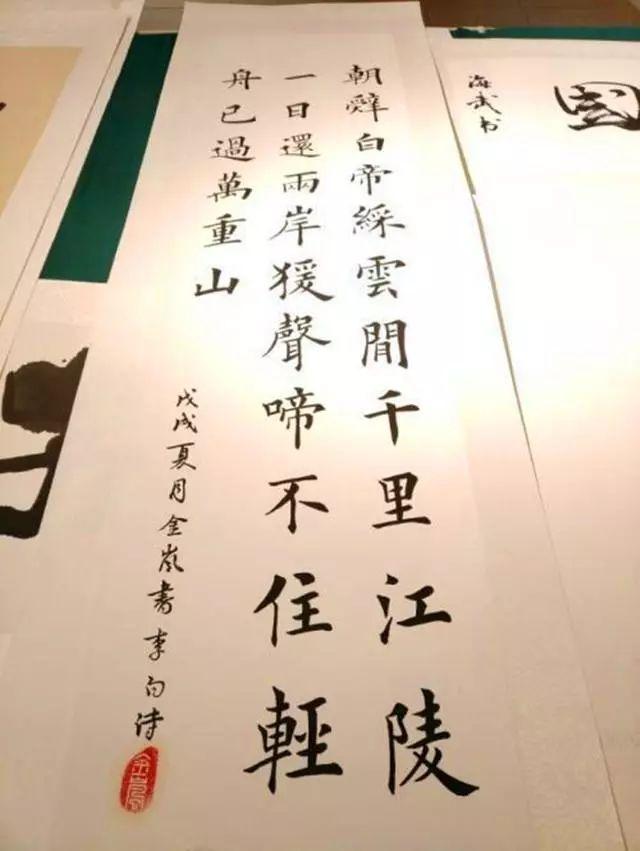 朝辤白帝綵雲間千里江陵
一日還兩岸猨聲啼不住輕
舟已過萬重山
戊戌夏月金嵐書李白诗
海武书
國